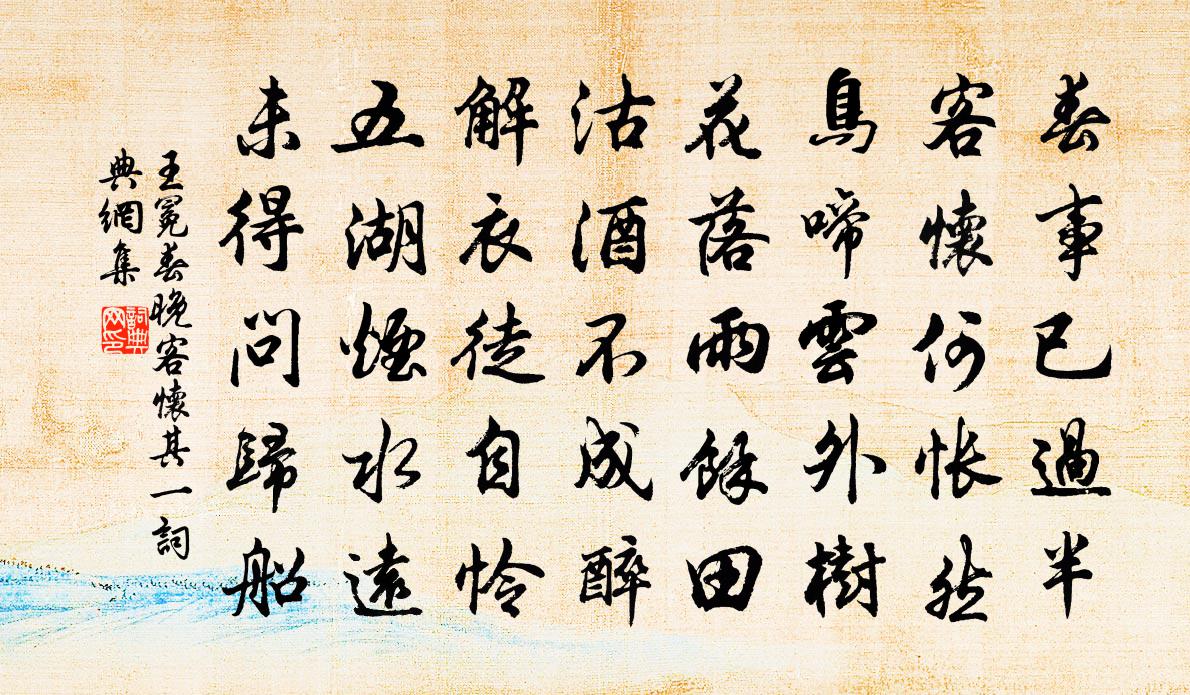 春事已過半
客懷何悵然
鳥啼雲外樹
花落雨餘田
沽酒不成醉
解衣徒自怜
五湖煙水遠
未得問歸船
王冕春晚客懷其一詞
典網集
詞典
网印